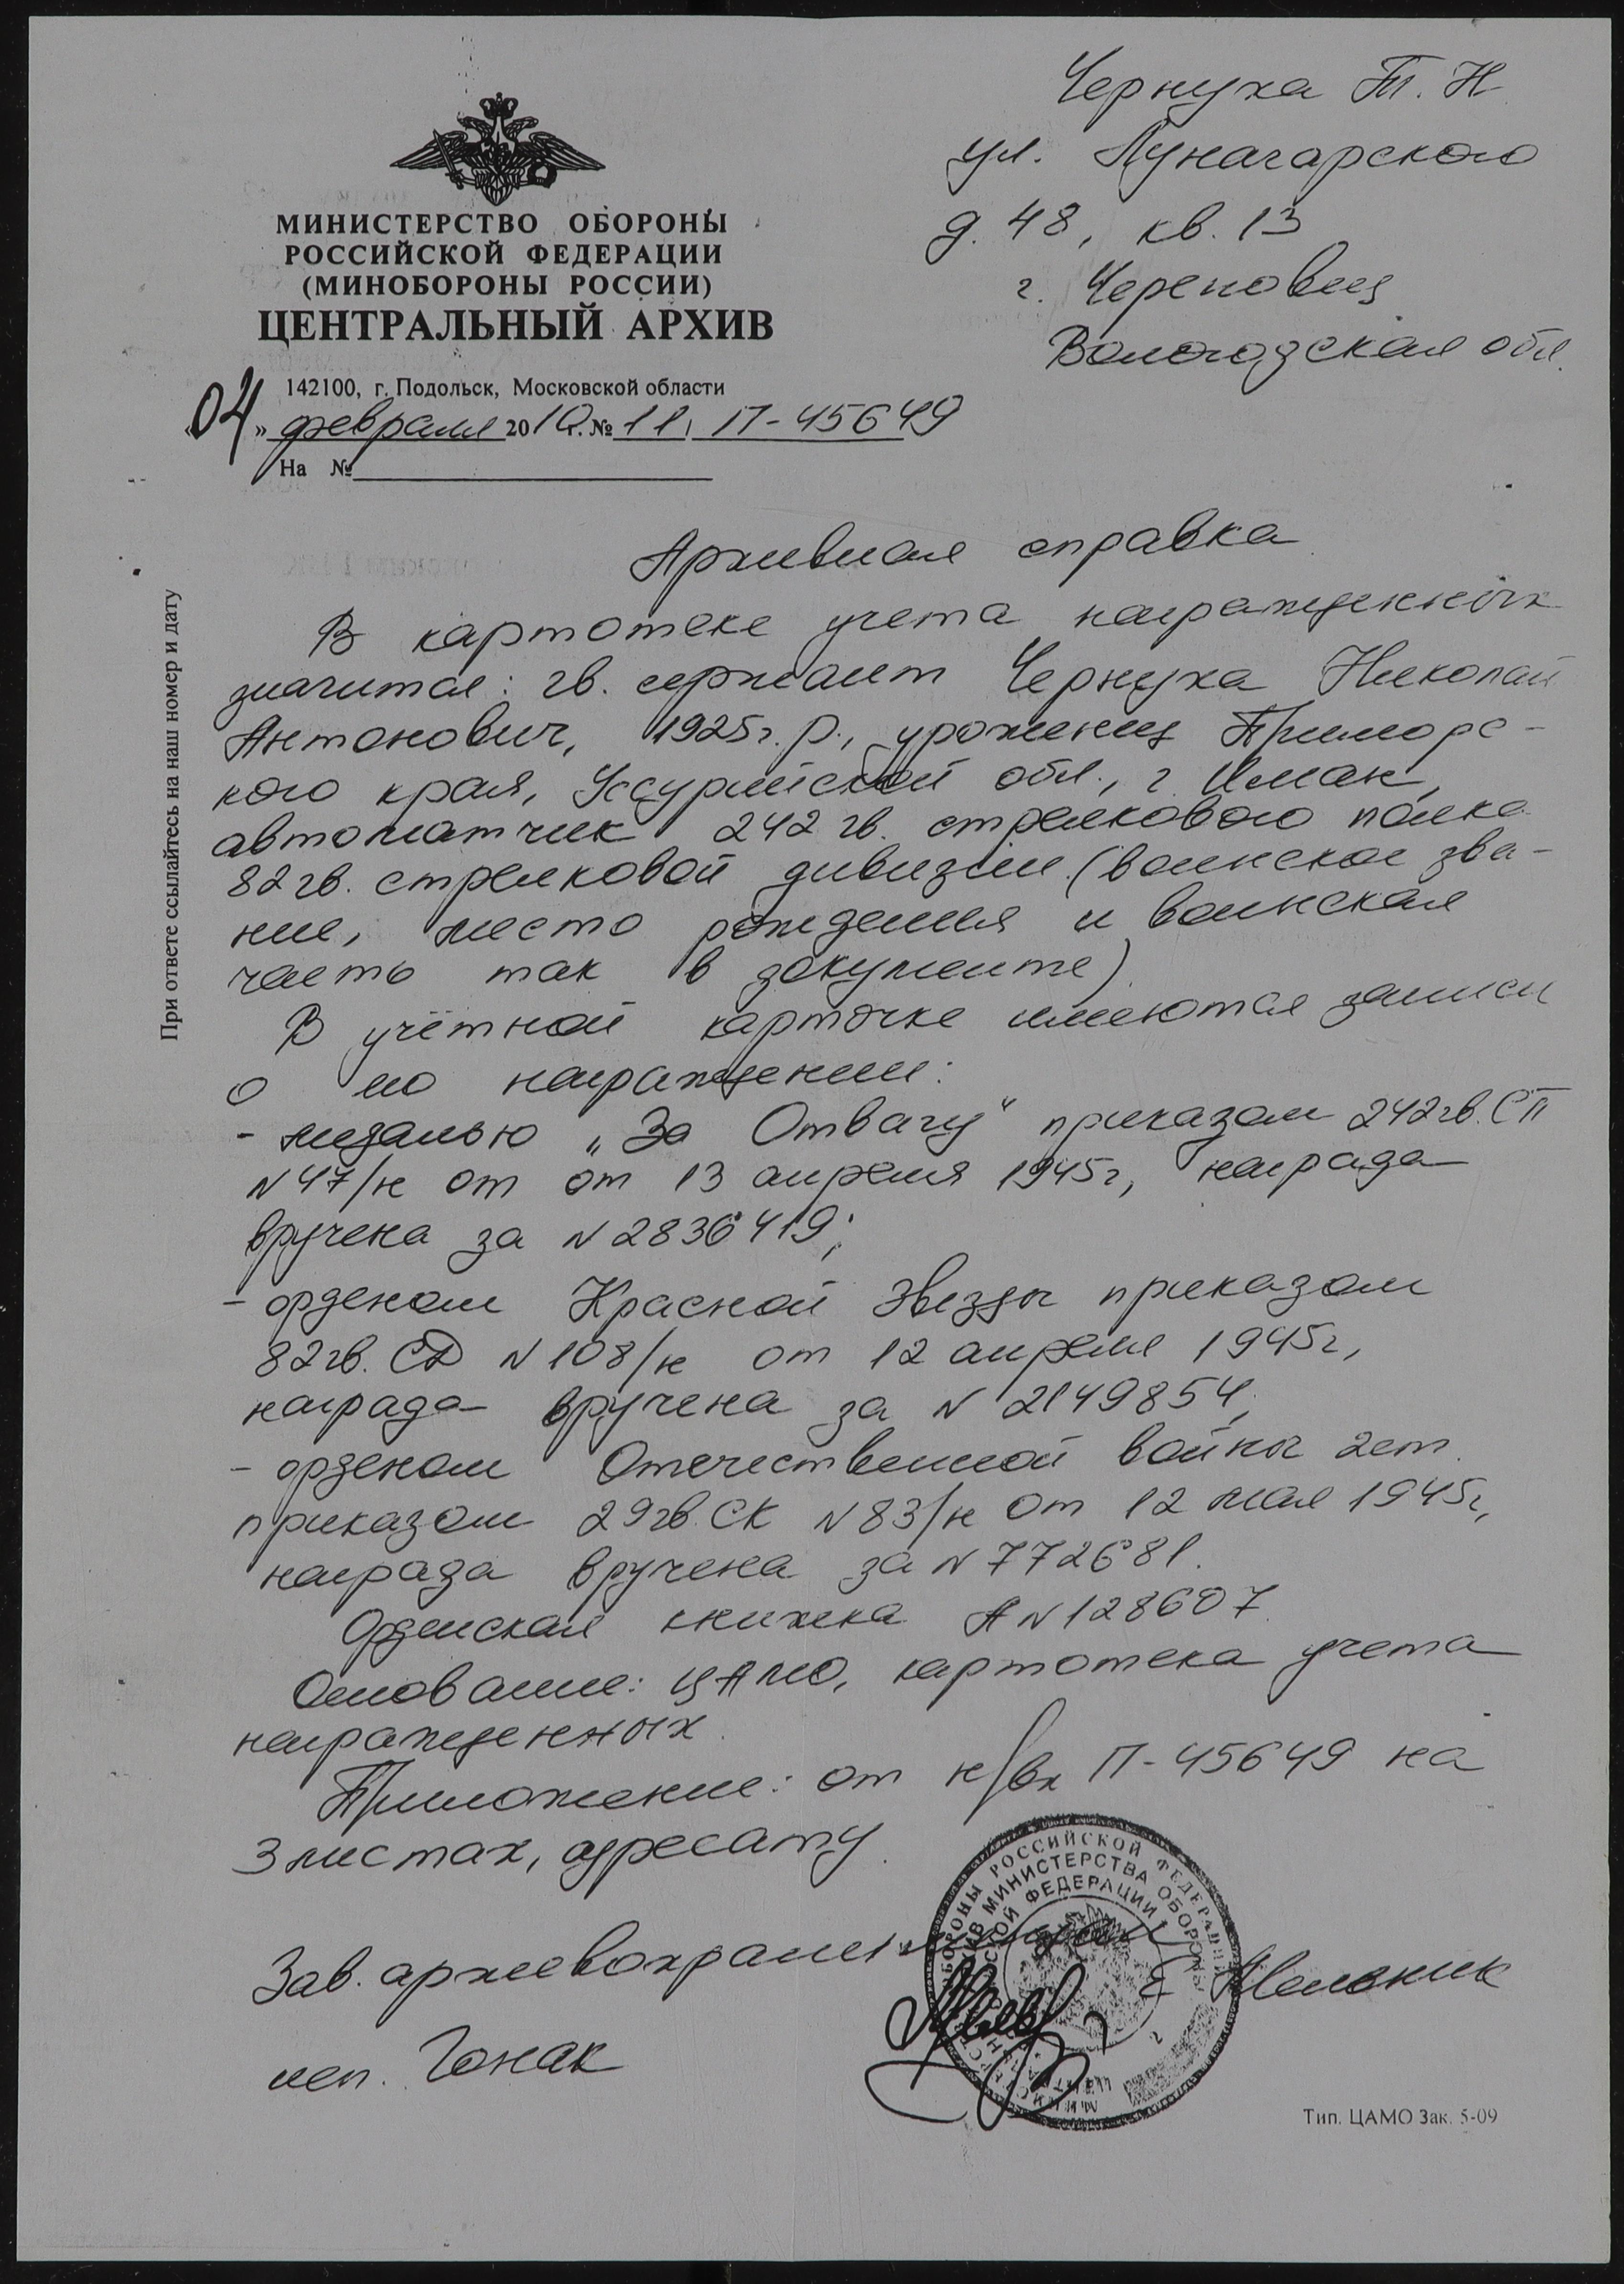 Чернуха Т. Н.
ул. Луначарского
д. 48, кв. 13
г. Череповец
Вологодская обл.
МИНИСТЕРСТВО ОБОРОНЫ
РОССИЙСКОЙ ФЕДЕРАЦИИ
(МИНОБОРОНЫ РОССИИ)
ЦЕНТРАЛЬНЫЙ АРХИВ
142100, г. Подольск, Московской области
«04» февраля 2010 г. № 11, П-45649
На №
При ответе ссылайтесь на наш номер и дату
Архивная справка
В картотеке учета награжденных
значится: гв. сержант Чернуха Николай
Антонович, 1925г.р., уроженец Приморс-
кого края, Уссурийской обл., г. Иман,
автоматчик 242 гв. стрелкового полка
82 гв. стрелковой дивизии (воинское зва-
ние, место рождения и воинская
часть так в документе)
В учётной карточке имеются записи
о его награждении:
- медалью „За Отвагу" приказом 242гв. СП
N 47/н от от 13 апреля 1945г, награда
вручена за N 2836419;
- орденом Красной Звезды приказом
82гв. СД N 108/н от 12 апреля 1945г,
награда вручена за N 2149854;
- орденом Отечественной войны 2ст.
приказом 29гв. СК N 83/н от 12 мая 1945г,
награда вручена за N 772681.
Орденская книжка А N 128607
Основание: ЦАМО, картотека учета
награжденных.
Приложение: от н/вх П-45649 на
3 листах, адресату.
Зав. архивохранилищем Е Мельник
исп. Гонак
МИНИСТЕРСТВА ОБОРОНЫ
РОССИЙСКОЙ ФЕДЕРАЦИИ
Тип. ЦАМО Зак. 5-09